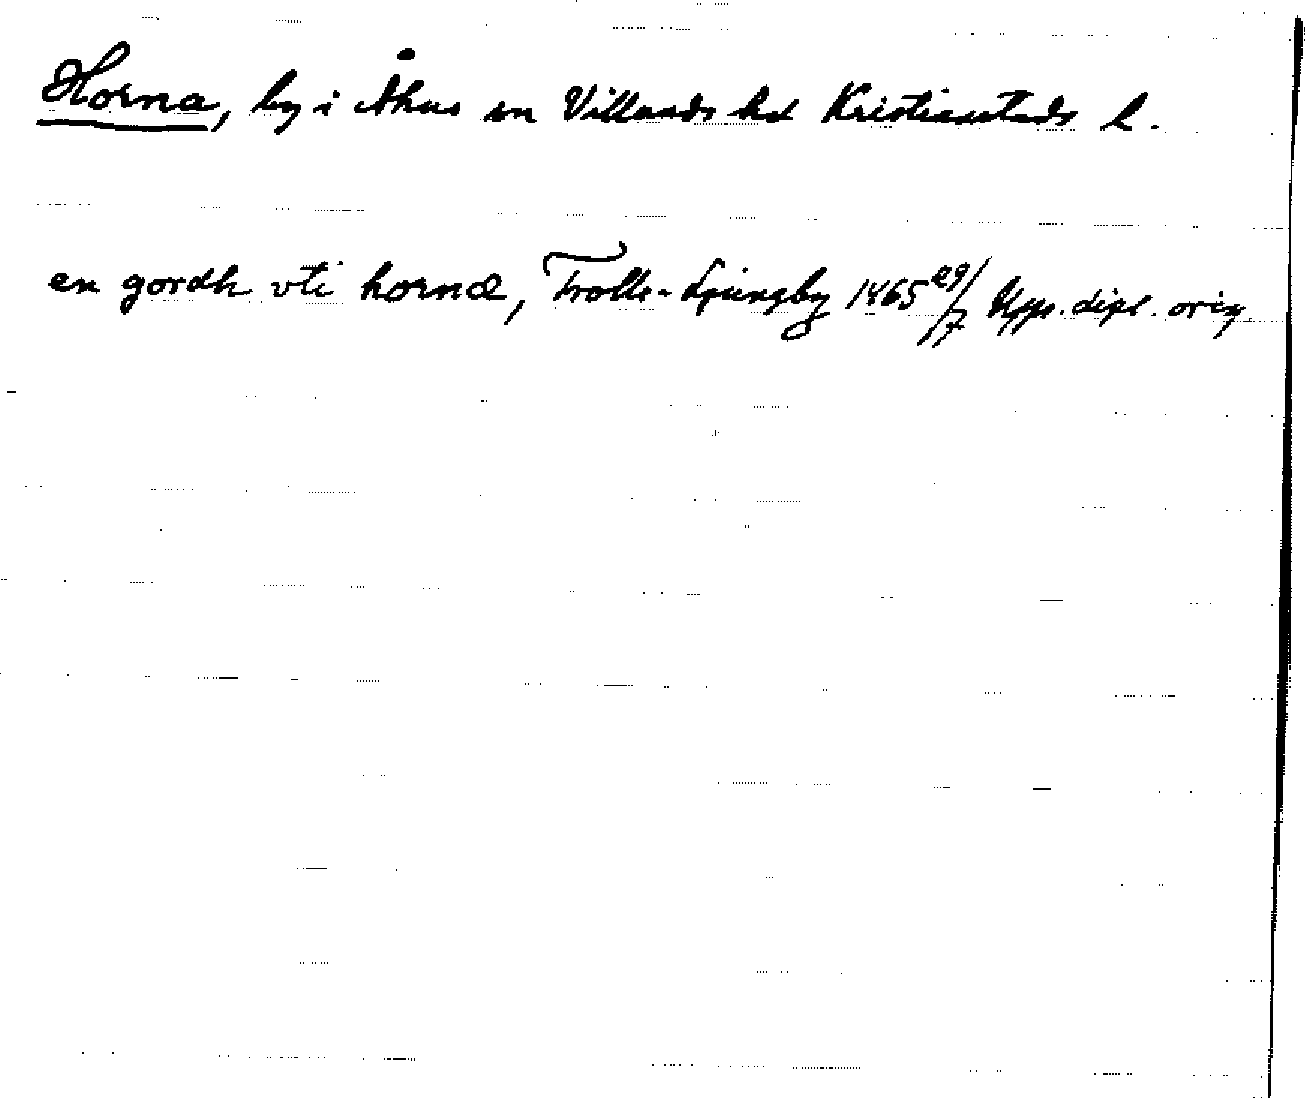 Horna, by i Åhus sn Villands hd Kristianstads l.
en gordh vti hornæ, Trolle-Ljungby 1465 29/7 Upps. dipl. orig.